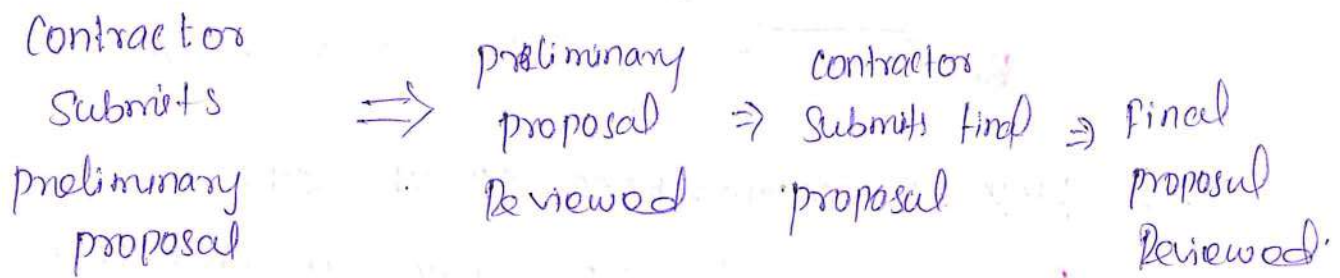 Contractor
Submits
preliminary
proposal
⇒
preliminary
proposal
Reviewed
⇒
contractor
submits final
proposal
⇒
Final
proposal
Reviewed.